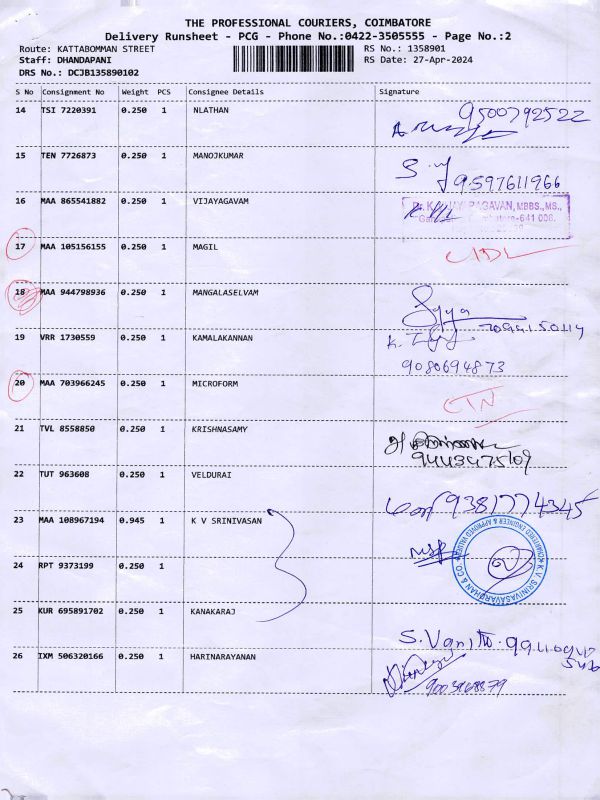 THE PROFESSIONAL COURIERS, COIMBATORE
Delivery Runsheet - PCG - Phone No.:0422-3505555 - Page No.:2
Route: KATTABOMMAN STREET RS No.: 1358901
Staff: DHANDAPANI RS Date: 27-Apr-2024
DRS No.: DCJB135890102
S No Consignment No Weight PCS Consignee Details Signature
14 TSI 7220391 0.250 1 NLATHAN 9500792522
15 TEN 7726873 0.250 1 MANOJKUMAR 9597611966
16 MAA 865541882 0.250 1 VIJAYAGAVAM MBBS.,MS., Coimbatore-641 008.
17 MAA 105156155 0.250 1 MAGIL
18 MAA 944798936 0.250 1 MANGALASELVAM
19 VRR 1730559 0.250 1 KAMALAKANNAN 9080694873
20 MAA 703966245 0.250 1 MICROFORM
21 TVL 8558850 0.250 1 KRISHNASAMY
22 TUT 963608 0.250 1 VELDURAI 9381774345
23 MAA 108967194 0.945 1 K V SRINIVASAN
24 RPT 9373199 0.250 1
25 KUR 695891702 0.250 1 KANAKARAJ
26 IXM 506320166 0.250 1 HARINARAYANAN